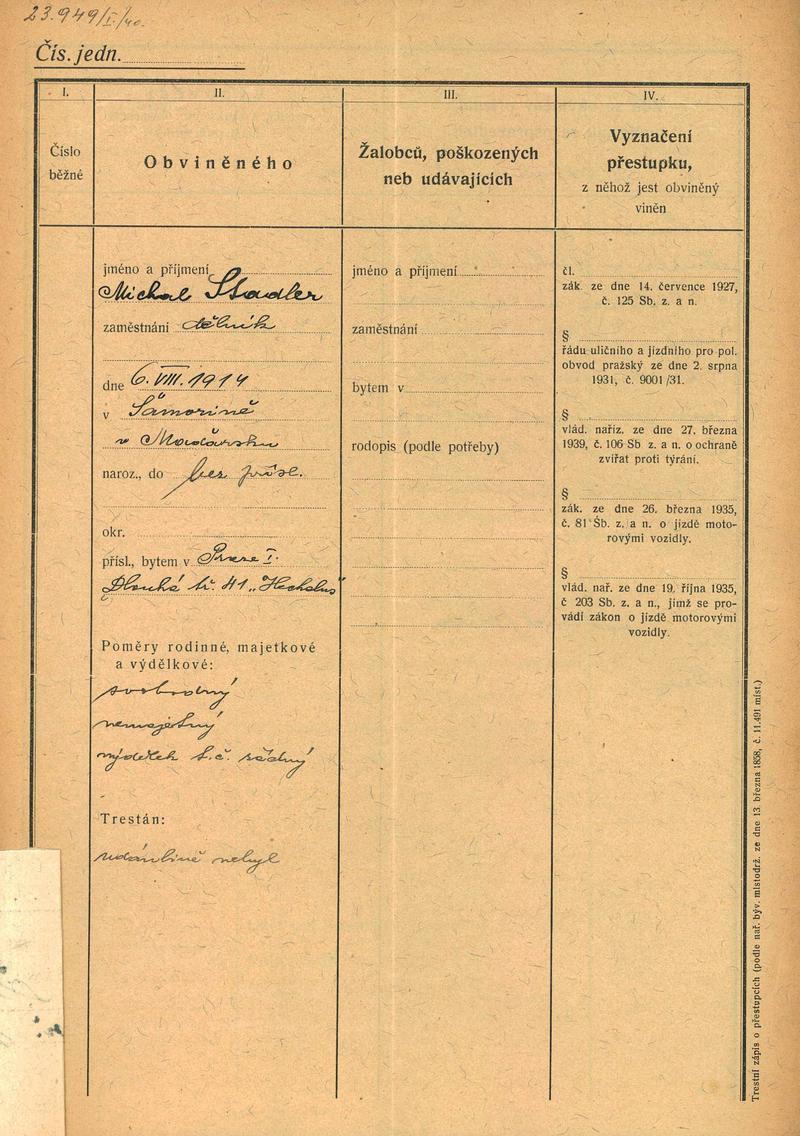 23.949/I./40.
Čís. jedn.
I.
Číslo
běžné
II.
Obviněného
III.
Žalobců, poškozených
neb udávajících
IV.
Vyznačení
přestupku,
z něhož jest obviněný
viněn
jméno a příjmení
Michal Stadler
zaměstnání dělník
dne 6. VIII. 1914
v Šamoríně
v Maďarsku
naroz., do bez přísl.
okr.
přísl., bytem v Praze I.
Dlouhá tř. 41
Poměry rodinné, majetkové
a výdělkové:
svobodný
nemajetný
výdělek t. č. žádný
Trestán:
údánlivě nebyl
jméno a příjmení
zaměstnání
bytem v
rodopis (podle potřeby)
čl.
zák. ze dne 14. července 1927,
č. 125 Sb. z. a n.
§
řádu uličního a jízdního pro pol.
obvod pražský ze dne 2. srpna
1931, č. 9001/31.
§
vlád. naříz. ze dne 27. března
1939, č. 106 Sb z. a n. o ochraně
zvířat proti týrání.
§
zák. ze dne 26. března 1935,
č. 81 Sb. z. a n. o jízdě moto-
rovými vozidly.
§
vlád. nař. ze dne 19. října 1935,
č 203 Sb. z. a n., jímž se pro-
vádí zákon o jízdě motorovými
vozidly.
Trestní zápis o přestupcích (podle nař. býv. místodrž. ze dne 13. března 1858, č. 11.491 míst.)